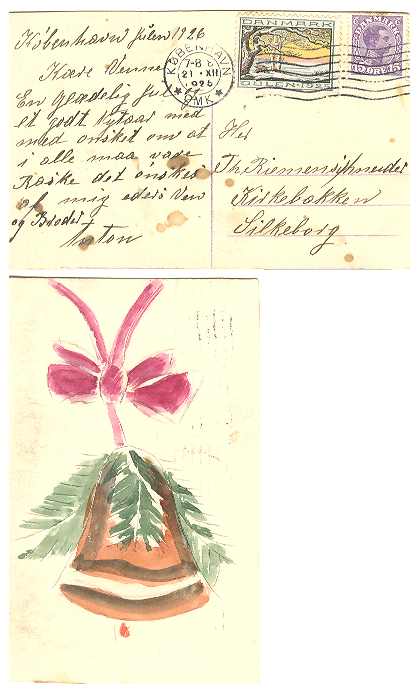 København Julen 1926
Kære Venner
En Glædelig Jul
et godt Nytaar med
med ønsket om at
i alle maa være
Raske det ønskes
af mig eders Ven
og Broder
Anton
KØBENHAVN
7-8
21 XII
1926
OMK
DANMARK
JULEN 1926
DANMARK
15 ØRE 15
Hr
Th. Riemenschneider
Kirkebakken
Silkeborg